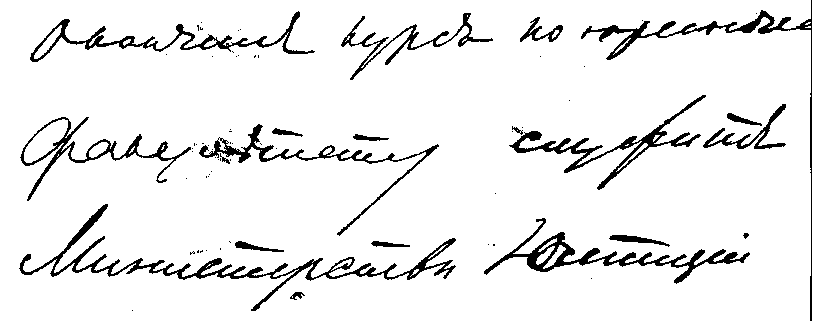 окончилъ курсъ по юридиче
факультету служитъ
Министерства Юстиціи